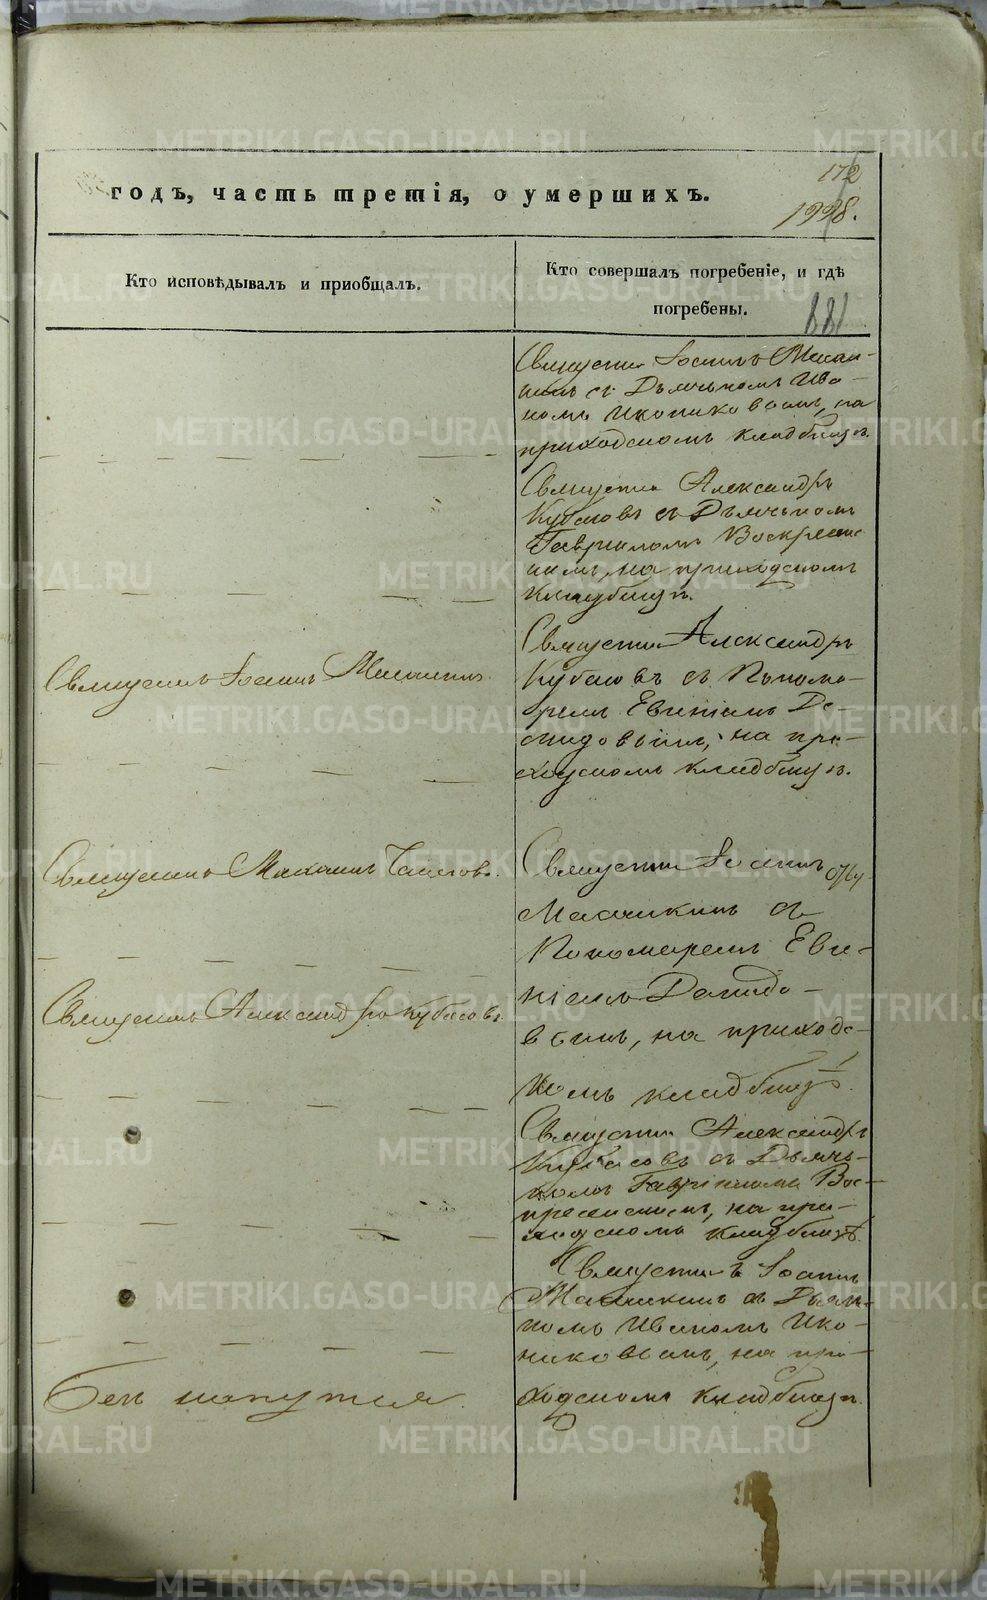 172
годъ, часть третія, о умершихъ.
1998.
Кто исповѣдывалъ и пріобщалъ.
Кто совершалъ погребеніе, и гдѣ
погребены.
881
Священникъ Іоаннъ
съ Дьячкомъ Ива-
номъ Иконниковымъ, на
приходскомъ кладбищѣ.
Священникъ Александръ
Кубасовъ съ Дьячкомъ
Гавриломъ Воскресенс
кимъ, на приходскомъ
кладбищѣ.
Священникъ Александръ
Кубасовъ съ Понома-
ремъ Евгеніемъ Де-
мидовымъ, на при-
ходскомъ кладбищѣ.
Священникъ Іоаннъ
Священникъ Іоаннъ
съ
Пономаремъ Евге-
ніемъ Демидо-
вымъ, на приходс-
комъ кладбищѣ.
Священникъ
Священникъ Александръ Кубасовъ.
Священникъ Александръ
Кубасовъ съ Дьяч-
комъ Гавріиломъ Вос-
кресенскимъ, на при-
ходскомъ кладбищѣ.
Священникъ Іоаннъ
съ Дьяч-
комъ Иваномъ Ико-
никовымъ, на при-
ходскомъ кладбищѣ.
Безъ напутствія
METRIKI.GASO-URAL.RU